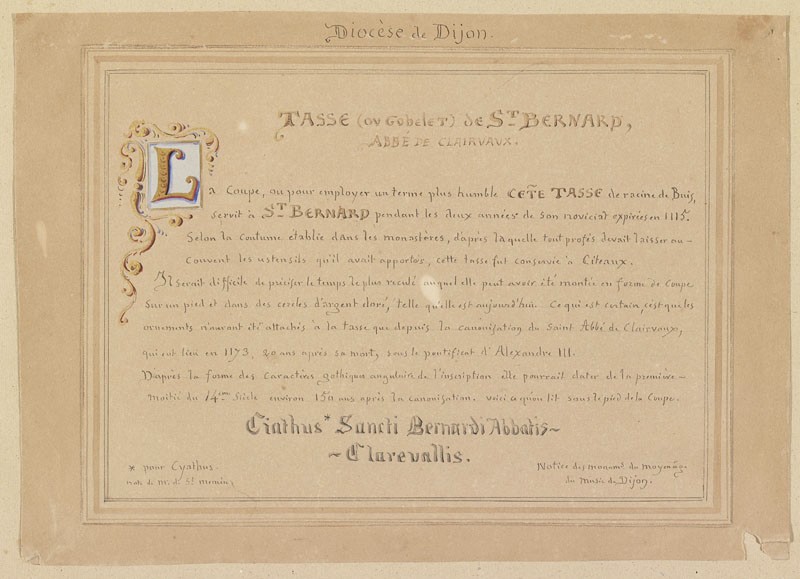 Diocèse de Dijon.
TASSE (ou Gobelet) de ST BERNARD,
ABBÉ DE CLAIRVAUX.
La Coupe, ou pour employer un terme plus humble CETTE TASSE de racine de Buis,
servit à ST BERNARD pendant les deux années de son noviciat expirées en 1115.
Selon la coutume établie dans les monastères, d'après laquelle tout profès devait laisser au-
Couvent les ustensils qu'il avait apportés, cette tasse fut conservée à Citeaux.
Il serait difficile de préciser le temps le plus reculé auquel elle peut avoir été montée en forme de coupe
sur un pied et dans des cercles d'argent doré, telle qu'elle est aujourd'hui. Ce qui est certain, c'est que les
ornements n'auront été attachés à la tasse que depuis la canonisation du Saint Abbé de Clairvaux,
qui eut lieu en 1173, 20 ans après sa mort, sous le pontificat d'Alexandre III.
D'après la forme des caractères gothiques angulaires de l'inscription elle pourrait dater de la première-
moitié du 14me Siècle environ 150 ans après la canonisation. voici ce qu'on lit sous le pied de la Coupe.
Ciathus* Sancti Bernardi Abbatis~
~Clarevallis.
* pour Cyathus.
note de mr. de St memin
Notice des monumd. du moyen âge
du musée de Dijon.